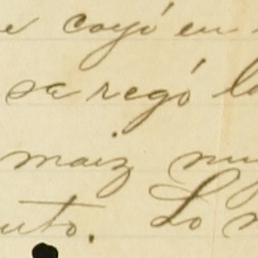 e cayó en
sa regó l
maiz mu
uto. Lo